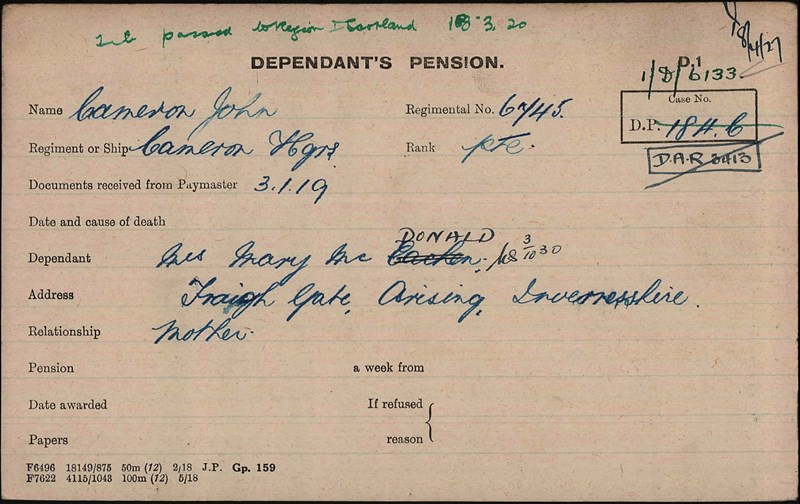 passed to Region I Scotland 18.3.20
18/4/27
DEPENDANT'S PENSION.
D.1
1/D/6133
Name Cameron John
Regimental No. 6745.
Case No.
D.P. 184.6
Regiment or Ship Cameron Hgrs
Rank Pte.
D.A.R 3413
Documents received from Paymaster 3.1.19
Date and cause of death
DONALD
Dependant Mrs Mary Mc Eachen. 3/10 30
Address Traigh Gate, Arising, Invernesshire.
Relationship Mother.
Pension a week from
Date awarded If refused
Papers reason
F6496 18149/875 50m (12) 2/18 J.P. Gp. 159
F7622 4115/1043 100m (12) 5/18